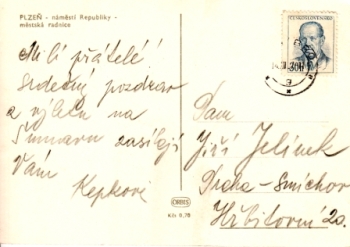 PLZEŇ - náměstí Republiky -
městská radnice
ČESKOSLOVENSKO
Milí přátelé!
Srdečný pozdrav
z výletu na
Šumavu zasílají
Vám
Kepkovi
Pan
Jiří Jelínek
Praha - Smíchov
Hřbitovní 20.
ORBIS
Kčs 0,70